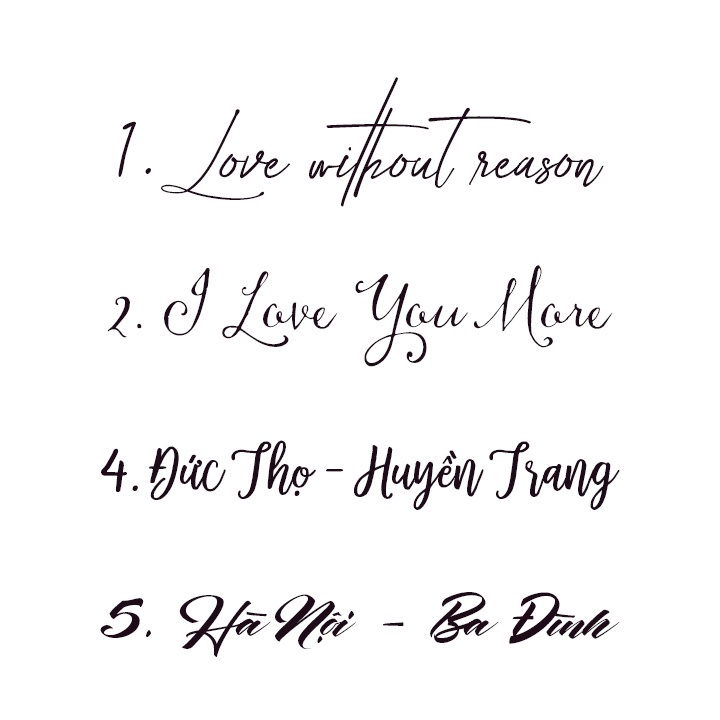 1. Love without reason
2. I Love You More
4. Đức Thọ - Huyền Trang
5. Hà Nội - Ba Đình